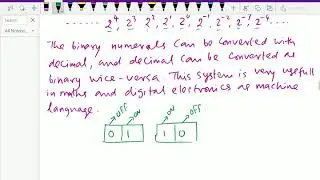 ....... 2⁴, 2³, 2², 2¹, 2⁰, 2⁻¹, 2⁻², 2⁻³, 2⁻⁴....
The binary numerals can be converted with
decimal, and decimal can be converted as
binary wice-versa. This system is very usefull
in maths and digital electronics as machine
language.
OFF ON ON OFF
0 1 1 0